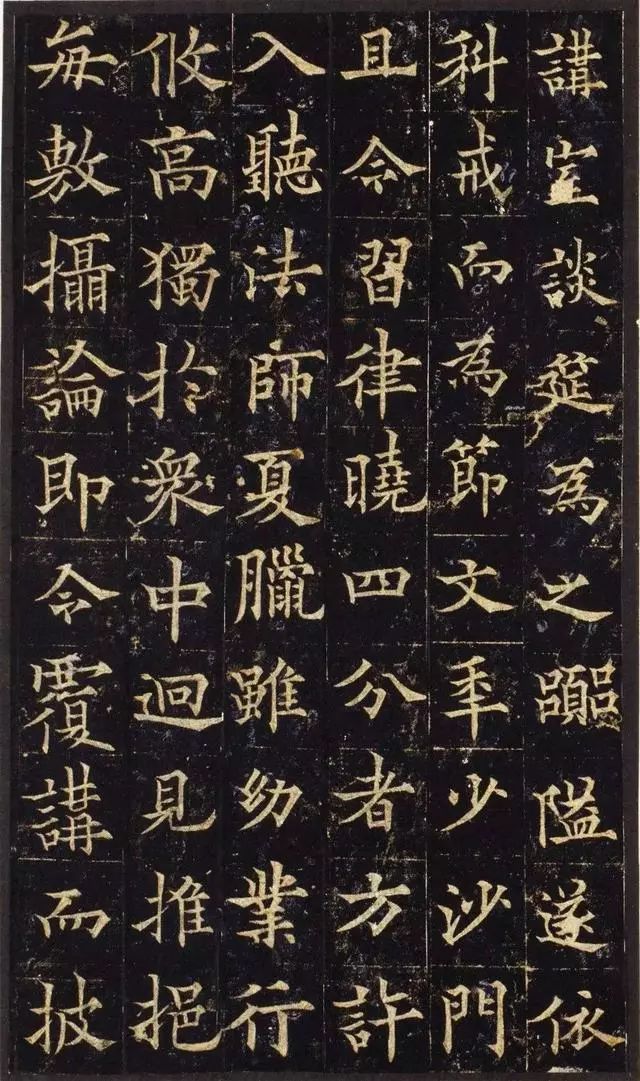 講室談筵為之嚣隘遂依
科戒而為節文年少沙門
且令習律曉四分者方許
入聽法師夏臘雖幼業行
攸高獨於衆中迥見推挹
每敷攝論即令覆講而披